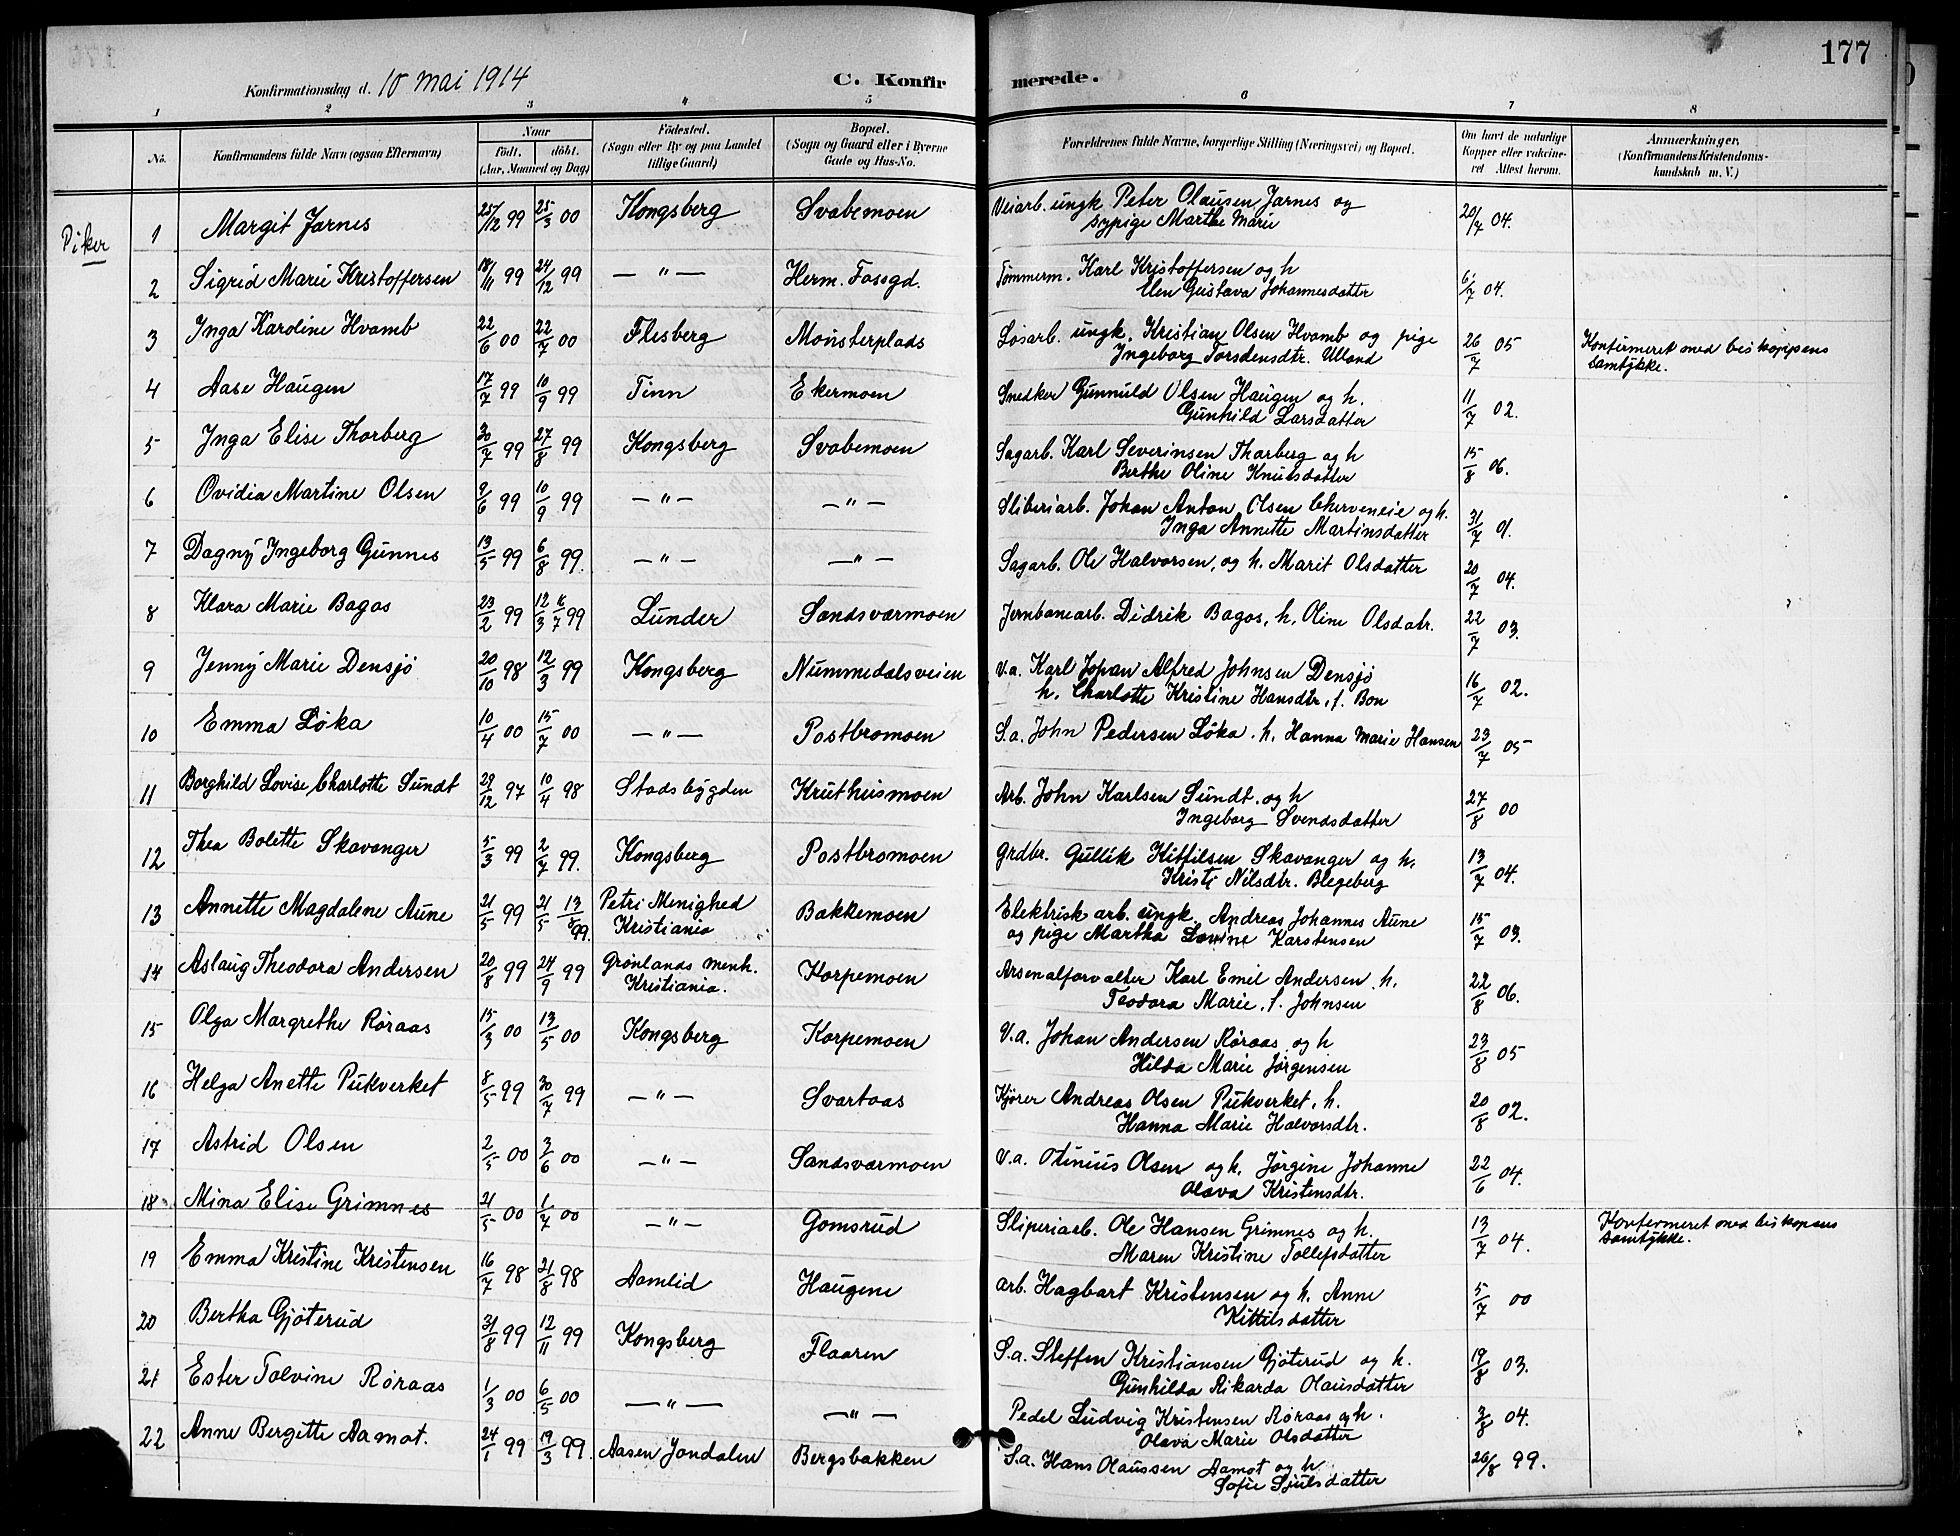 177
Konfirmationsdag d. 10 mai 1914 C. Konfirmerede.
1 2 3 4 5 6 7 8
No. Konfirmandens fulde Navn (ogsaa Efternavn) Naar födt. döbt. (Aar, Maaned og Dag) Födested. (Sogn eller By og paa Landet tillige Gaard) Bopæl. (Sogn og Gaard eller i Byerne Gade og Hus-No. Forældrenes fulde Navne, borgerlige Stilling (Næringsvei) og Bopæl. Om havt de naturlige Kopper eller vakcineret Attest herom. Anmærkninger, (Konfirmandens Kristendomskundskab m. V.)
Piker
1 Margit Jarnes 25/12 99 25/3 00 Kongsberg Svabemoen Veiarb. ungk Peter Olausen Jarnes og 20/7 04.
sypige Marthe Marie
2 Sigrid Marie Kristoffersen 18/11 99 24/12 99 — " — Herm. Fossgd. Tømmerm. Karl Kristoffersen og h 6/7 04.
Elen Gustava Johannesdatter
3 Inga Karoline Hvamb 22/6 00 22/7 00 Flesberg Mønsterplads Løsarb. ungk. Kristian Olsen Hvamb og pige 26/7 05 Konfirmeret med biskoppens
Ingeborg Torsdensdtr. Ulland samtykke.
4 Aase Haugen 17/7 99 10/9 99 Tinn Ekermoen Snedker Gunnuld Olsen Haugen og h. 11/7 02.
Gunhild Larsdatter
5 Inga Elise Thorberg 30/7 99 27/8 99 Kongsberg Svabemoen Sagarb. Karl Severinsen Thorberg og h 15/8 06.
Berthe Oline Knutsdatter
6 Ovidia Martine Olsen 9/6 99 10/9 99 — " — — " — Sliberiarb. Johan Anton Olsen Cherveneie og h. 31/7 01.
Inga Annette Martinsdatter
7 Dagny Ingeborg Gunnes 13/5 99 6/8 99. — " — — " — Sagarb. Ole Halvorsen, og h. Marit Olsdatter 20/7 04.
8 Klara Marie Bagas 23/2 99 12/3 6/7 99 Lunder Sandsværmoen Jernbanearb. Didrik Bagos, h. Oline Olsdatr. 22/7 03.
9 Jenny Marie Densjö 20/10 98 12/3 99 Kongsberg Nummedalsveien V.a. Karl Johan Alfred Johnsen Densjö 16/7 02.
h. Charlotte Kristine Hansdtr. f. Bon
10 Emma Løka 10/4 00 15/7 00 — " — Postbromoen S.a. John Pedersen Løka. h. Hanna Marie Hansen 23/7 05
11 Borghild Lovise Charlotte Sundt 29/12 97 10/4 98 Stadsbygden Kruthusmoen Arb. John Karlsen Sundt. og h 27/8 00
Ingeborg Svendsdatter
12 Thea Bolette Skavanger 5/3 99 2/7 99. Kongsberg Postbromoen Grdbr. Gullik Kittilsen Skavanger og h. 13/7 04.
Kristi Nilsdtr. Blegeberg
13 Annette Magdalene Aune 21/5 99 21/5 13/8 99. Petri Menighed Kristiania Bakkemoen Elektrisk arb. ungk. Andreas Johannes Aune 15/7 03.
og pige Martha Lovine Karstensen
14 Aslaug Theodora Andersen 20/8 99 24/9 99 Grønlands menh. Kristiania. Korpemoen Arsenalforvalter Karl Emil Andersen h. 22/8 06.
Teodora Marie, f. Johnsen
15 Olga Margrethe Røraas 15/3 00 13/5 00 Kongsberg Korpemoen V.a. Johan Andersen Røraas og h 23/8 05
Hilda Marie Jørgensen
16 Helga Anette Pukverket 8/5 99 30/7 99 — " — Svartaas Kjører Andreas Olsen Pukverket, h. 20/8 02.
Hanna Marie Halvorsdtr.
17 Astrid Olsen 2/5 00 3/6 00 — " — Sandsværmoen V.a. Otinius Olsen og h. Jørgine Johanne 22/6 04.
Olava Kristensdtr.
18 Mina Elise Grimnes 21/5 00 1/7 00 — " — Gomsrud Sliperiarb. Ole Hansen Grimnes og h. 13/7 04. Konfirmeret med biskopens
Maren Kristine Tollefsdatter samtykke.
19 Emma Kristine Kristensen 16/7 98 21/8 98 Aamlid Haugene arb. Hagbart Kristensen og h. Anne 5/7 00
Kittilsdatter
20 Bertha Gjøterud 31/8 99 12/11 99 Kongsberg Flaaren S.a. Steffen Kristiansen Gjøterud og h. 19/8 03.
Gunhilda Rikarda Olausdatter
21 Ester Tolvine Røraas 1/3 00 6/5 00 — " — — " — Pedel Ludvig Kristensen Røraas og h. 3/8 04.
Olava Marie Olsdatter
22 Anne Bergitte Aamot. 24/1 99 19/3 99. Aasen Jondalen Bergsbakken S.a. Hans Olaussen Aamot og h 26/8 99.
Sofie Sjulsdatter